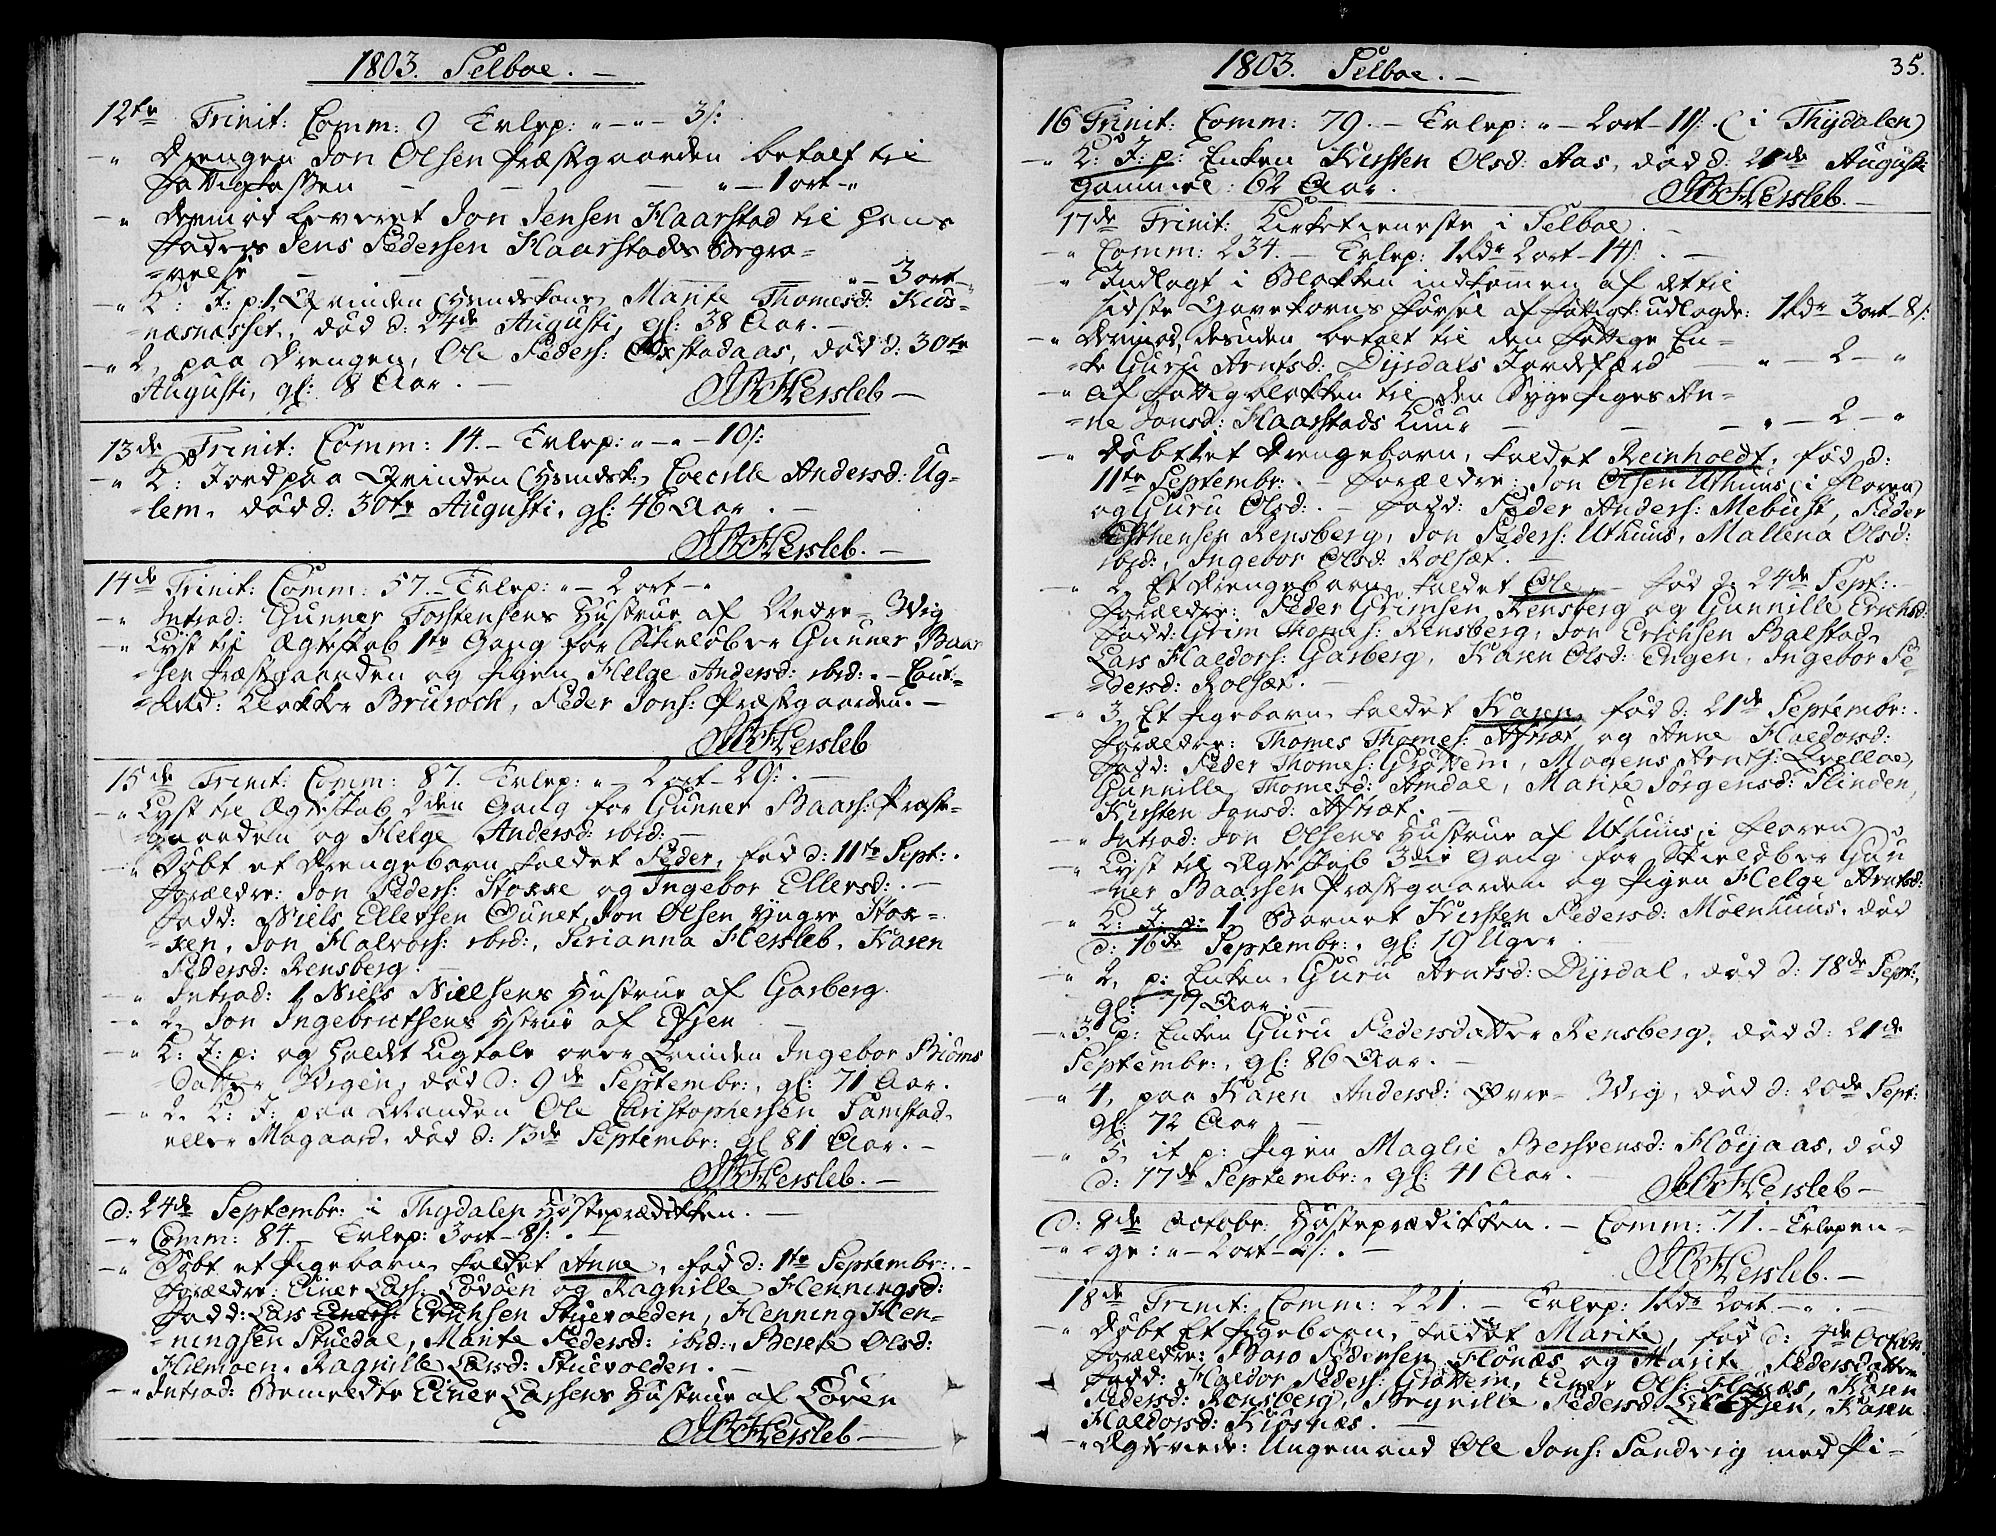 1803. Selboe. —
12te Trinit: Comm: 9 Erlep: „ — „ — 3 s:
— „ Drengen Jon Olsen Præstgaarden betalt til
Fattigkassen — — — „ — 1 ort — „
— „ Derimod leveret Jon Jensen Haarstad til hans
Faders Jens Pedersen Haarstads Begra=
=velse — — — „ — 3 ort — „
— „ K: J: p: 1, Qvinden (Huuskone) Marite Thomesd: Kiøs=
næsnasset, død d: 24de Augusti, gl: 38 Aar. —
— „ 2, paa Drengen, Ole Peders: stadaas, død d: 30te
Augusti, gl: 8 Aar. —
Hersleb —
13de Trinit: Comm: 14. — Erlep: „ — „ — 10 s:
— „ K: Jord paa Qvinden (Huusk:) Coecille Andersd: Ug=
=lem, død d: 30te Augusti, gl: 46 Aar. —
Hersleb. —
14de Trinit: Comm: 57. — Erlep: „ — 2 ort — „
— „ Introd: Gunner Torstensens Hustrue af Nedre = Wiig
— „ Lyst til Ægteskab 1te Gang for Skieløber Gunner Baar
=sen Præstgaarden og Pigen Helge Andersd: ibid: . — Caut:
Klokker Bruroch, Peder Jons: Præstgaarden. —
Hersleb
15de Trinit: Comm: 87. Erlep: „ — 2 ort — 20 s: . —
— „ Lyst til Ægteskab 2den Gang for Gunner Baars: Præst=
gaarden og Helge Andersd: ibid: —
— „ Døbt et Drengebarn kaldet Peder, fød d: 11te Sept: .
Forældre: Jon Peders: Stokke og Ingebor Ellersd: . —
Fadd: Niels Ellefsen Ounet, Jon Olsen yngre Stok=
=ken, Jon Halvors: ibid:, Sirianna Hersleb, Karen
Pedersd: Rensberg. —
— „ Introd: 1 Niels Nielsens Hustrue af Garberg.
— „ 2, Jon Ingebrictsens Hustrue af Evjen —
— „ K: J: p: og holdt Ligtale over Qvinden Ingebor Biørns
datter Wigen, død d: 9de Septembr:, gl: 71 Aar.
— „ 2, K: J: paa Manden Ole Christophersen Samstad
eller Mogaard, død d: 13de Septembr: gl 81 Aar. —
Hersleb. —
d: 24de Septembr: i Thydalen Høstepræddikken. —
— „ Comm: 84. — Erlep: 3 ort — 8 s: . —
— „ Døbt et Pigebarn, kaldet Anne, fød d: 1te Septembr: . —
Forældre: Einer Lars: Løvøen og Ragnille Henningsd:
Fadd: Lars Erichsen Stuevolden, Henning Hen=
=ningsen Stuedal, Marite Pedersd: ibid:, Berete Olsd:
Hilmoen, Ragnille Larsd: Stuevolden. —
— „ Introd: Bemeldte Einer Larsens Hustrue af Løven
Hersleb —
1803. Selboe. —
35.
16 Trinit: Comm: 79. — Erlep: „ — 2 ort — 11 s. (i Thydalen)
— „ K: J: p: Enken Kirsten Olsd: Aas, død d: 21de Augusti
gammel: 62 Aar.
Hersleb. —
17de Trinit: Kirketieneste i Selboe. —
— „ Comm: 234. — Erlep: 1 Rdr 2 ort — 14 s: . —
— „ Indlagt i Blokken indkommen af det til
sidste Gavekorns Førsel af fattigk: udlagde: 1 Rdr 3 ort — 8 s:
— „ Derimod desuden betalt til den fattige En=
=ke Guru Arntsd: Dyrdals Jordefærd — „ — 2 — „
— „ af Fattigblokken til den syge Piges An=
=ne Jonsd: Haarstads Kuur — — „ — 2 — „
— „ Døbt 1 et Drengebarn, kaldet Reinholdt, fød d:
11te Septembr: . — Forældre: Jon Olsen Uthuus (i Floren)
og Guru Olsd: . — Fadd: Peder Anders: Mebust, Peder
Esthensen Rensberg, Jon Peders: Uthuus, Mallena Olsd:
ibid:, Ingebor Olsd: Rolsæt. —
— „ 2 Et Drengebarn, kaldet Ole — fød d: 24de Sept: . —
Forældre: Peder Grimsen Rensberg og Gunnille Erichsd:
Fadd: Grim Thomes: Rensberg, Jon Erichsen Balstad,
Lars Haldors: Garberg, Karen Olsd: Engen, Ingebor Pe=
=dersd: Rolsæt. —
— „ 3, Et Pigebarn, kaldet Karen, fød d: 21de Septembr: .
Forældre: Thomes Thomes: Aftræt og Anne Haldorsd:
Fadd: Peder Thomes: Grøttem, Mogens Arnts: Qvelloe,
Gunnille Thomesd: Amdal, Marite Jørgensd: Slinden,
Kirsten Jonsd: Aftræt. —
— „ Introd: Jon Olsens Hustrue af Uthuus, i Floren)
— „ Lyst til Ægteskab 3die Gang for Skieløber Gun
=ner Baarsen Præstgaarden og Pigen Helge Arntsd:
— „ K: J: p: 1, Barnet Kirsten Pedersd: Moenhuus, død
d: 16de Septembr:, gl: 19 Uger.
— „ 2, p: Enken, Guru Arntsd: Dyrdal, død d: 18de Sept:,
gl: 79 Aar. —
— „ 3, p: Enken Guru Pedersdatter Rensberg, død d: 21de
Septembr:, gl: 86 Aar. —
— „ 4, paa Karen Andersd: Øvre = Wiig, død d: 20de Sept:
gl: 72 Aar. —
— „ 5, it p: Pigen Maglie Bersvensd: Høyaas, død
d: 17de Septembr:, gl: 41 Aar. —
Hersleb —
d: 8de Octobr: Høstepræddikken. — Comm: 71. — Erlepen=
— „ =ge: „ — 2 ort — 2 s: . —
Hersleb. —
18de Trinit: Comm: 221. — Erlep: 1 Rdr 2 ort — „ . —
— „ Døbt Et Pigebarn, kaldet Marite, fød d: 4de Octobr:
Forældre: Baro Pedersen Flønæs og Marit Pedersdatter
Fadd: Haldor Peders: Grøttem, Einer Ols: Flønæs, Karen
Pedersd: Rensberg, Pedersd: Evjen, Karen
Haldorsd: Kiøsnæs. —
— „ Ægteviede: Ungemand Ole Jons: Sandvig med Pi=